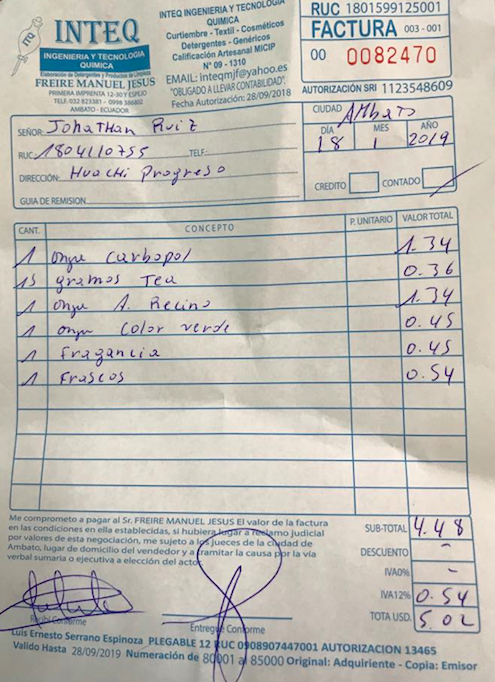 ITQ
INTEQ
INGENIERIA Y TECNOLOGIA
QUIMICA
Elaboración de Detergentes y Productos de Limpieza
FREIRE MANUEL JESUS
PRIMERA IMPRENTA 12-30 Y ESPEJO
TELF: 032 823381 - 0998 386802
AMBATO - ECUADOR
INTEQ INGENIERIA Y TECNOLOGIA
QUIMICA
Curtiembre - Textil - Cosméticos
Detergentes - Genéricos
Calificación Artesanal MICIP
N° 09 - 1310
EMAIL: inteqmjf@yahoo.es
"OBLIGADO A LLEVAR CONTABILIDAD".
Fecha Autorización: 28/09/2018
RUC 1801599125001
FACTURA 003 - 001
00 0082470
AUTORIZACIÓN SRI 1123548609
SEÑOR: Johathan Ruiz
RUC: 1804110755 TELF.:
DIRECCIÓN: Huachi Progreso
GUIA DE REMISION
CIUDAD Ambato
DÍA MES AÑO
18 1 2019
CREDITO CONTADO
CANT. CONCEPTO P. UNITARIO VALOR TOTAL
1 onza Carbopol 1.34
15 gramos Tea 0.36
1 onza A. Recino 1.34
1 onza Color verde 0.45
1 Fragancia 0.45
1 Frascos 0.54
Me comprometo a pagar al Sr. FREIRE MANUEL JESUS El valor de la factura
en las condiciones en ella establecidas, si hubiera lugar a reclamo judicial
por valores de esta negociación, me sujeto a los jueces de la ciudad de
Ambato, lugar de domicilio del vendedor y a tramitar la causa por la vía
verbal sumaria o ejecutiva a elección del actor.
SUB-TOTAL 4.48
DESCUENTO -
IVA0% -
IVA12% 0.54
TOTA USD. 5.02
Recibí Conforme
Entregué Conforme
Luis Ernesto Serrano Espinoza PLEGABLE 12 RUC 0908907447001 AUTORIZACION 13465
Valido Hasta 28/09/2019 Numeración de 80001 al 85000 Original: Adquiriente - Copia: Emisor